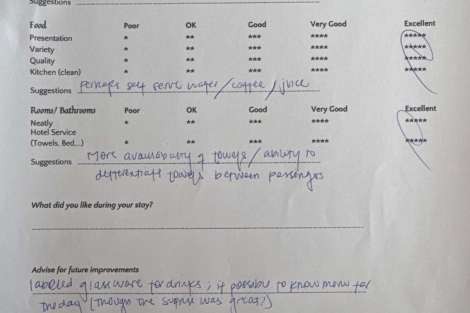 Suggestions
Food Poor OK Good Very Good Excellent
Presentation * ** *** **** *****
Variety * ** *** **** *****
Quality * ** *** **** *****
Kitchen (clean) * ** *** **** *****
Suggestions Perhaps self serve water / coffee / juice
Rooms/ Bathrooms Poor OK Good Very Good Excellent
Neatly * ** *** **** *****
Hotel Service
(Towels, Bed...) * ** *** **** *****
Suggestions More availability of towels / ability to
differentiate towels between passengers
What did you like during your stay?
Advise for future improvements
labelled glassware for drinks ; if possible to know menu for
the day (though the suprise was great!)